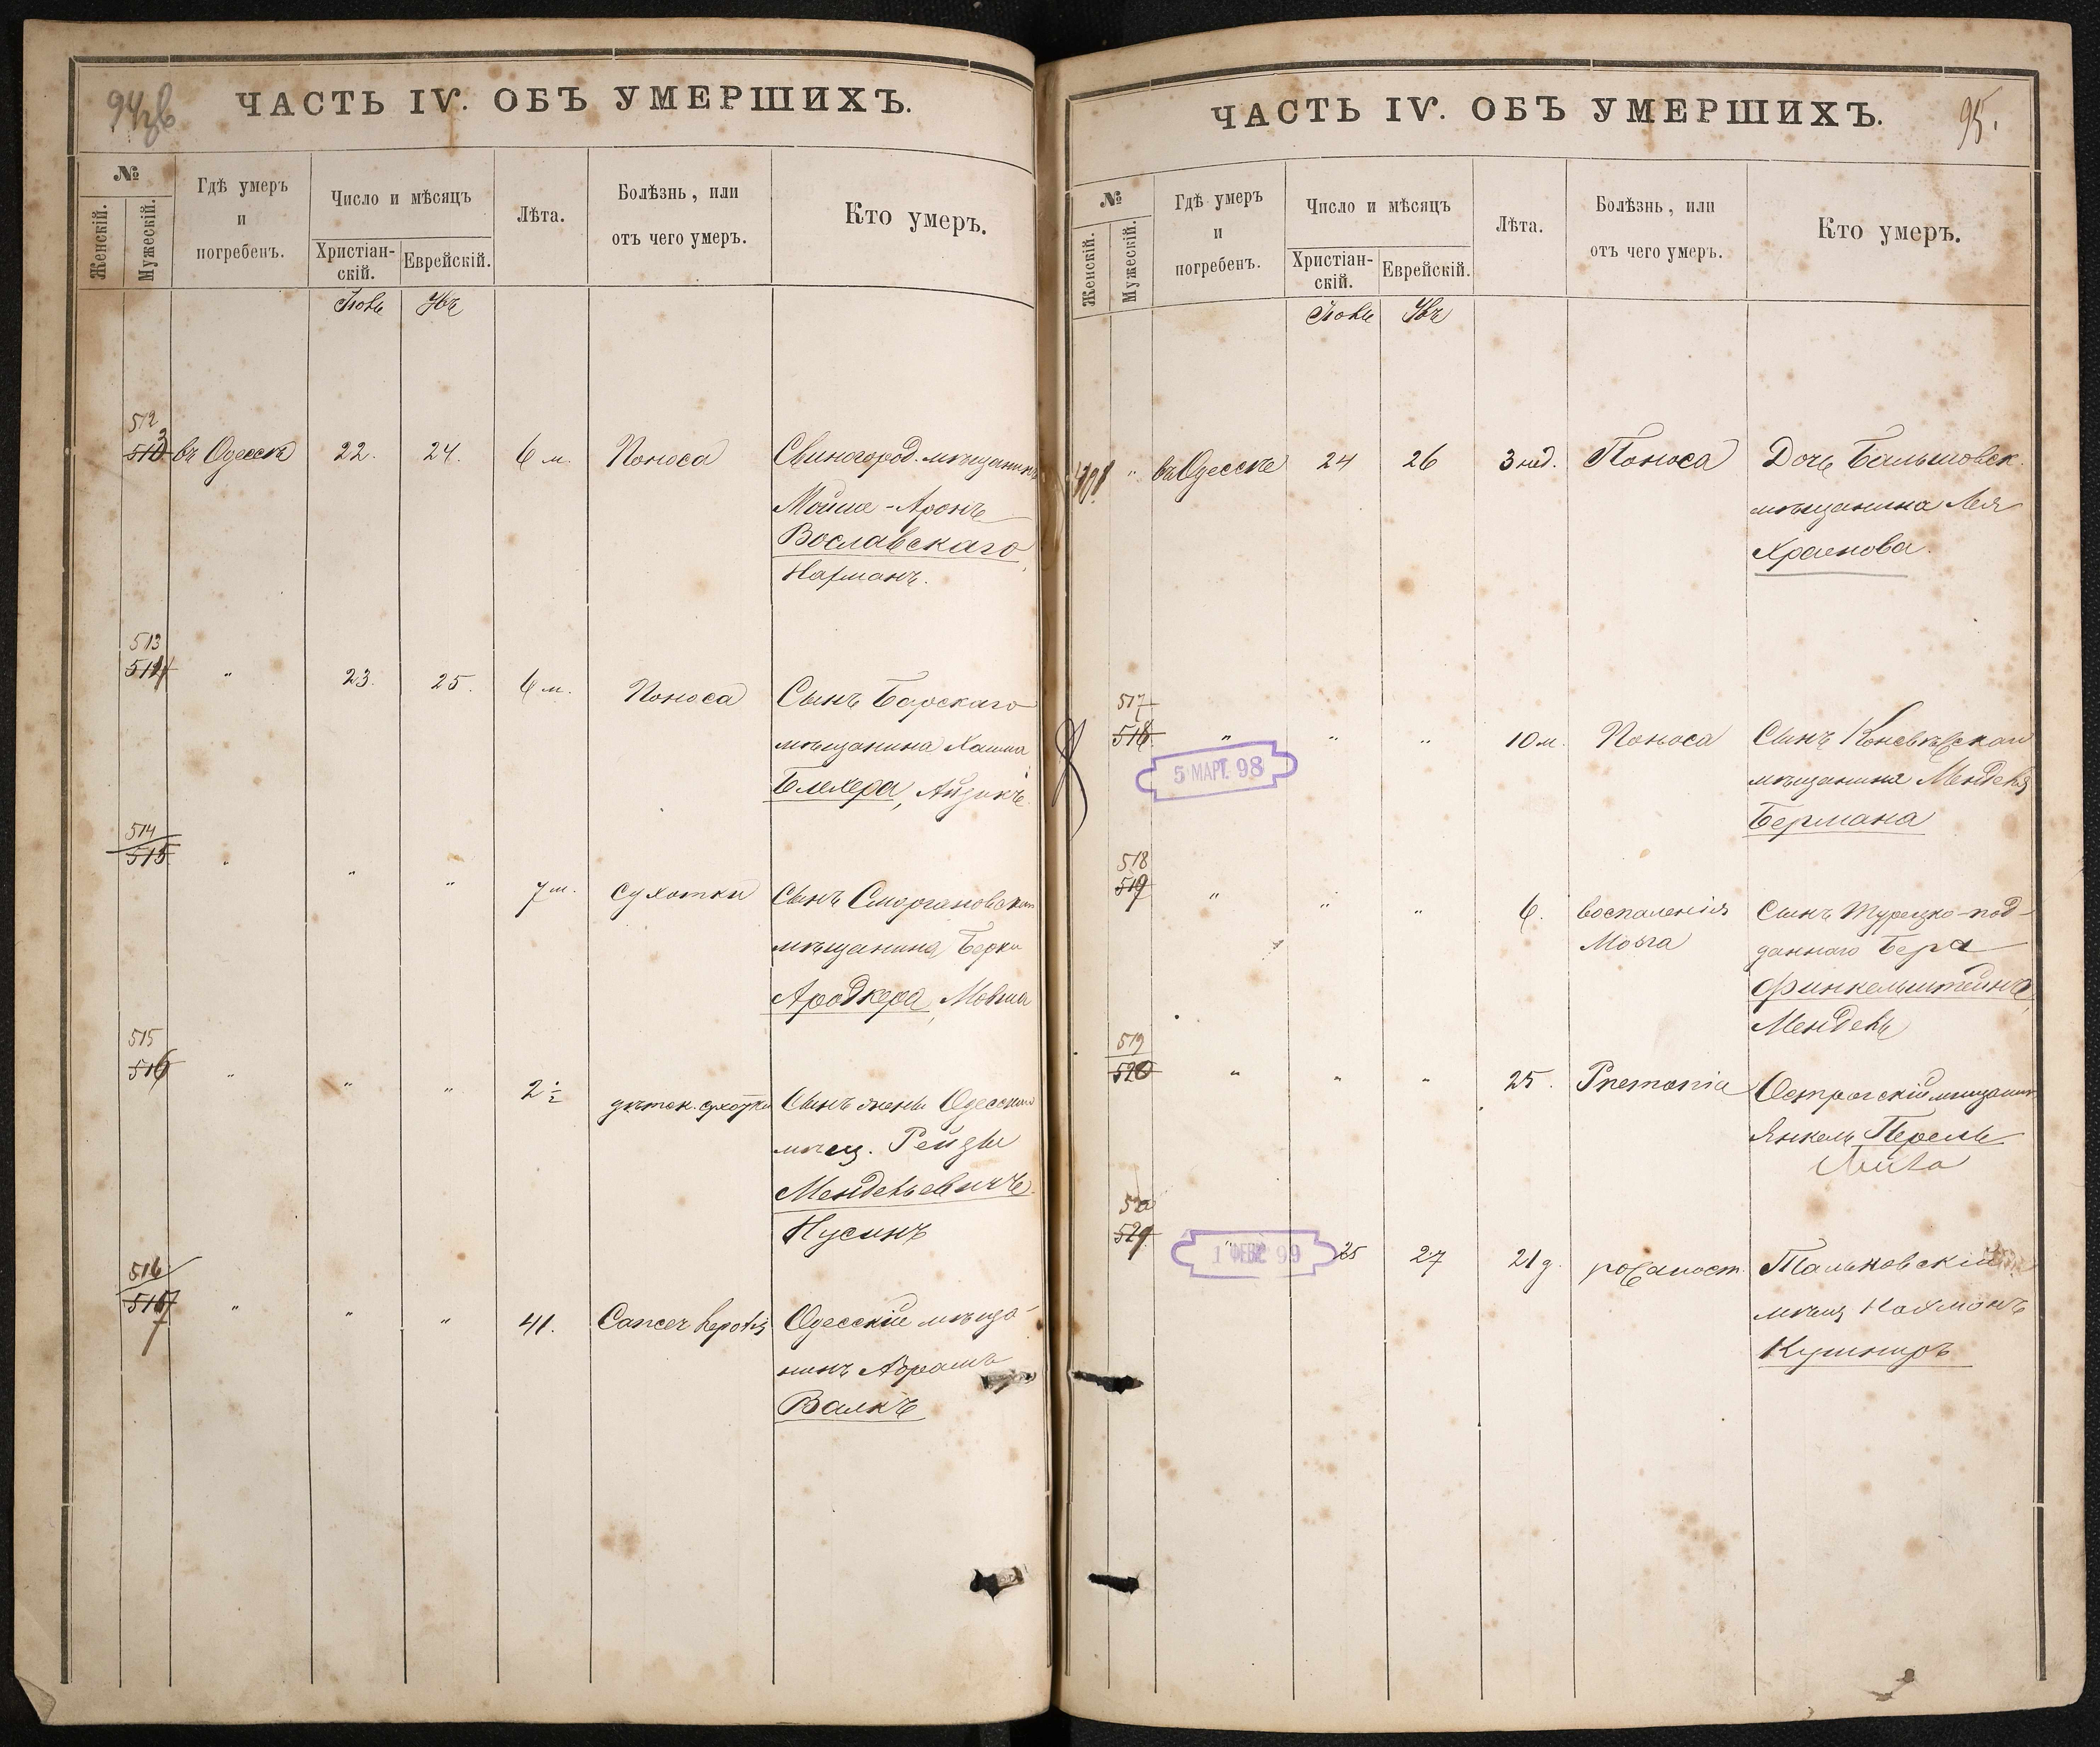 94 об
ЧАСТЬ IV. ОБЪ УМЕРШИХЪ.
№
Женскій.
Мужескій.
Гдѣ умеръ
и
погребенъ.
Число и мѣсяцъ
Христіан-
скій.
Еврейскій.
Лѣта.
Болѣзнь, или
отъ чего умеръ.
Кто умеръ.
512
513 въ Одессѣ 22. 24. 6 м. Поноса Свиногород. мѣщанинъ
Мойша-Аронъ
Вославскаго,
Нахманъ.
513
514 " 23. 25. 6 м. Поноса Сынъ Барскаго
мѣщанина Хаима
Блехера, Айзикъ.
514
515 " " " 7 м. Сухотки Сынъ
мѣщанина Берки
Мовша
515
516 " " " 2½ дѣтск. сухотки Сынъ жены Одесскаго
мѣщ. Рейзы
Мендельевичъ
Нусинъ
516
517 " " " 41. Cancer hepatis Одесскій мѣща-
нинъ Абрамъ
Валкъ
ЧАСТЬ IV. ОБЪ УМЕРШИХЪ.
95.
№
Женскій.
Мужескій.
Гдѣ умеръ
и
погребенъ.
Число и мѣсяцъ
Христіан-
скій.
Еврейскій.
Лѣта.
Болѣзнь, или
отъ чего умеръ.
Кто умеръ.
" въ Одессѣ 24 26 3 нед. Поноса Дочь
мѣщанина Лея
Храенова.
517
518 " " " 10 м. Поноса Сынъ
мѣщанина Мендель
Бермана
5 МАРТ. 98
518
519 " " " 6. воспаленія Сынъ Турецко-под-
Мозга даннаго Бера
Финкельштейна,
Мендель
519
520 " " " 25. Pnemonia Острогскій мѣщанинъ
Янкель Перель
520
521 " 25 27 21 д. Тальновскій
мѣщ Нахманъ
Кушниръ
1 ФЕВР. 99